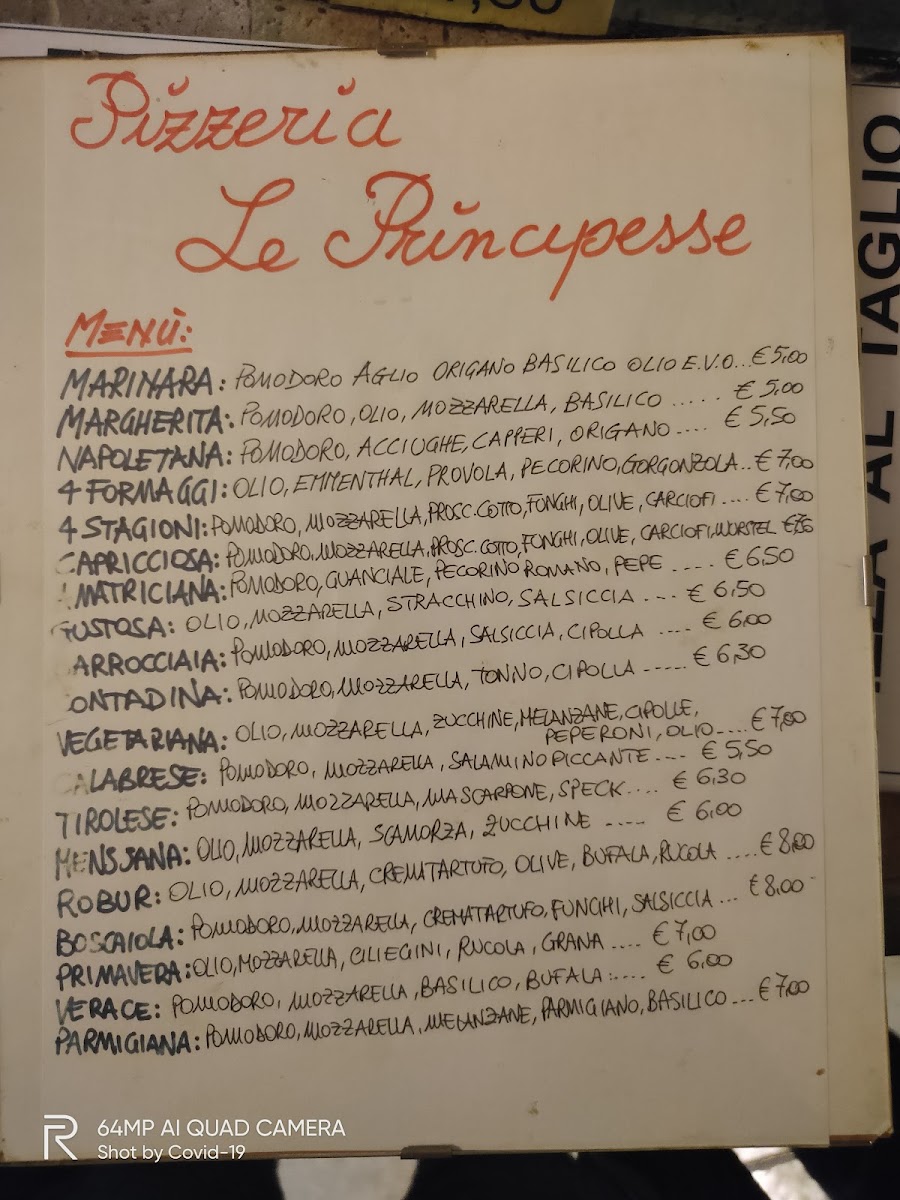 Pizzeria
Le Principesse
MENÙ:
MARINARA: POMODORO AGLIO ORIGANO BASILICO OLIO E.V.O... € 5,00
MARGHERITA: POMODORO, OLIO, MOZZARELLA, BASILICO ..... € 5,00
NAPOLETANA: POMODORO, ACCIUGHE, CAPPERI, ORIGANO .... € 5,50
4 FORMAGGI: OLIO, EMMENTHAL, PROVOLA, PECORINO, GORGONZOLA.. € 7,00
4 STAGIONI: POMODORO, MOZZARELLA, PROSC. COTTO, FONGHI, OLIVE, CARCIOFI .... € 7,00
CAPRICCIOSA: POMODORO, MOZZARELLA, PROSC. COTTO, FONGHI, OLIVE, CARCIOFI, WURSTEL
MATRICIANA: POMODORO, GUANCIALE, PECORINO ROMANO, PEPE .... € 6,50
GUSTOSA: OLIO, MOZZARELLA, STRACCHINO, SALSICCIA .... € 6,50
ARROCCIAIA: POMODORO, MOZZARELLA, SALSICCIA, CIPOLLA .... € 6,00
ONTADINA: POMODORO, MOZZARELLA, TONNO, CIPOLLA ..... € 6,30
VEGETARIANA: OLIO, MOZZARELLA, ZUCCHINE, MELANZANE, CIPOLLE,
PEPERONI, OLIO.... € 7,00
CALABRESE: POMODORO, MOZZARELLA, SALAMINO PICCANTE .... € 5,50
TIROLESE: POMODORO, MOZZARELLA, MASCARPONE, SPECK.... € 6,30
MENSSANA: OLIO, MOZZARELLA, SCAMORZA, ZUCCHINE ..... € 6,00
ROBUR: OLIO, MOZZARELLA, CREMTARTUFO, OLIVE, BUFALA, RUCOLA .... € 8,00
BOSCAIOLA: POMODORO, MOZZARELLA, CREMATARTUFO, FUNGHI, SALSICCIA ... € 8,00
PRIMAVERA: OLIO, MOZZARELLA, CILIEGINI, RUCOLA, GRANA .... € 7,00
VERACE: POMODORO, MOZZARELLA, BASILICO, BUFALA ..... € 6,00
PARMIGIANA: POMODORO, MOZZARELLA, MELANZANE, PARMIGIANO, BASILICO ... € 7,00
AL TAGLIO
64MP AI QUAD CAMERA
Shot by Covid-19